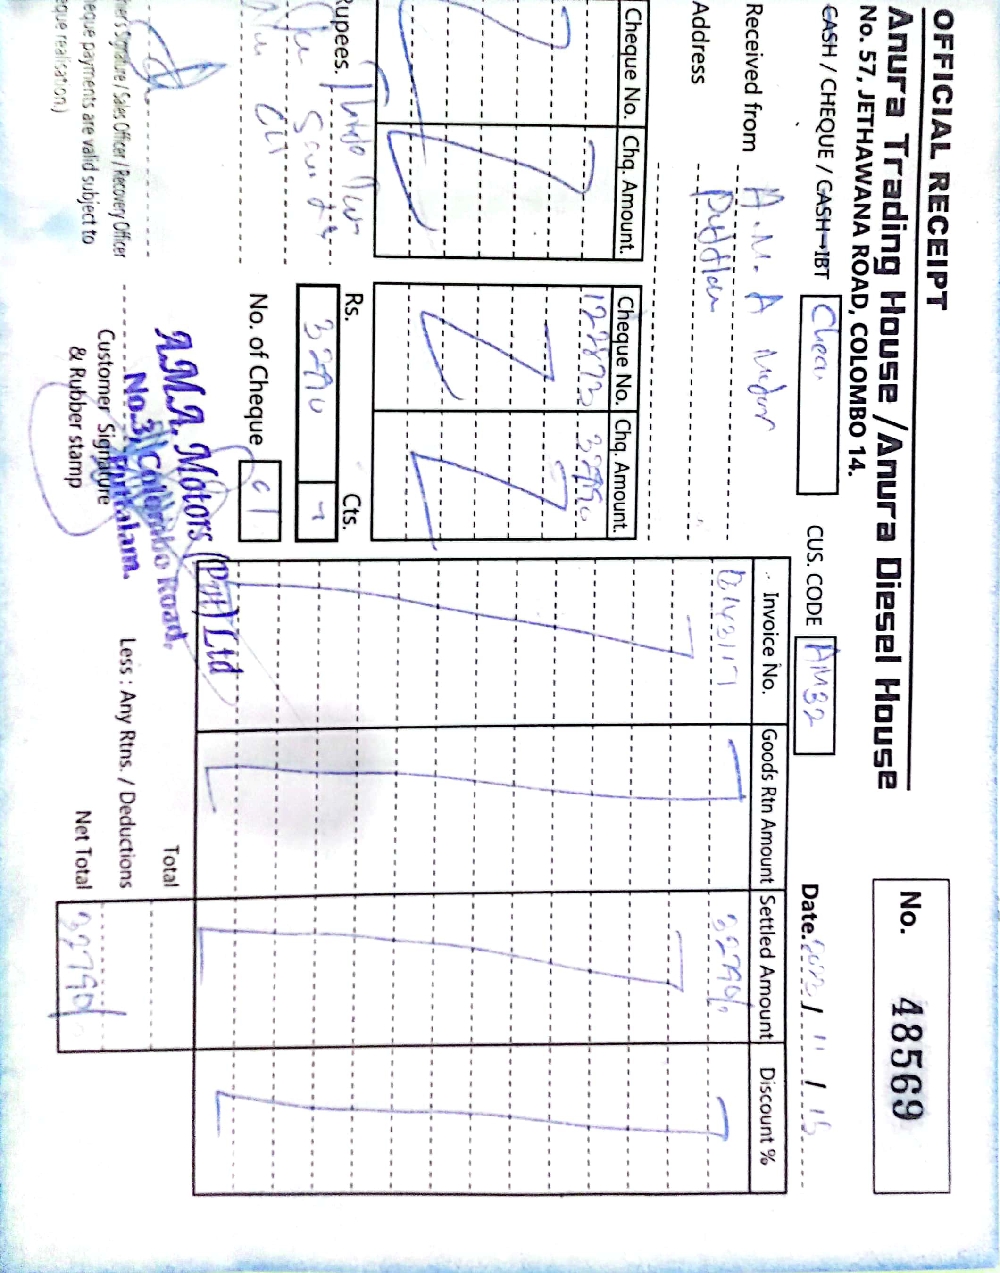 OFFICIAL RECEIPT
Anura Trading House / Anura Diesel House
No. 57, JETHAWANA ROAD, COLOMBO 14.
No. 48569
CASH / CHEQUE / CASH-IBT
CUS. CODE AM32
Date. / 11 / 15
Received from A.M. A
Address Puttalam
Cheque No. Chq. Amount.
Cheque No. Chq. Amount.
32790
Invoice No. Goods Rtn Amount Settled Amount Discount %
32790/-
Rupees.
Rs. Cts.
32790
No. of Cheque 01
Sales Officer / Recovery Officer
eque payments are valid subject to
eque realisation)
A.M.A. Motors (Pvt) Ltd
No.3, Colombo Road,
Puttalam.
Customer Signature
& Rubber stamp
Total
Less : Any Rtns. / Deductions
Net Total 32790/-